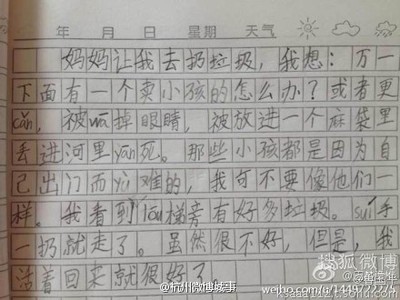 年 月 日 星期 天气
妈妈让我去扔垃圾，我想：万一
下面有一个卖小孩的怎么办？或者更
cǎn，被wā掉眼睛，被放进一个麻袋里
丢进河里yān死。那些小孩都是因为自
己出门而yù难的，我可不要像他们一
样。我看到lóu梯旁有好多垃圾。suí手
一扔就走了。虽然很不好，但是，我
活着回来就很好了
搜狐微博
@杭州微博城事
weibo.com/u/1449772775